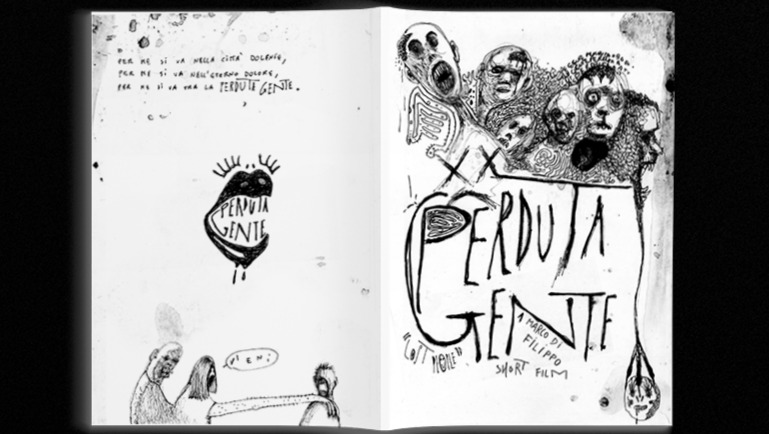 PER ME SI VA NELLA CITTA' DOLENTE,
PER ME SI VA NELL'ETERNO DOLORE,
PER ME SI VA TRA LA PERDUTA GENTE.
PERDUTA
GENTE
VIENI
PERDUTA
GENTE
"LOST PEOPLE"
A MARCO DI
FILIPPO
SHORT FILM